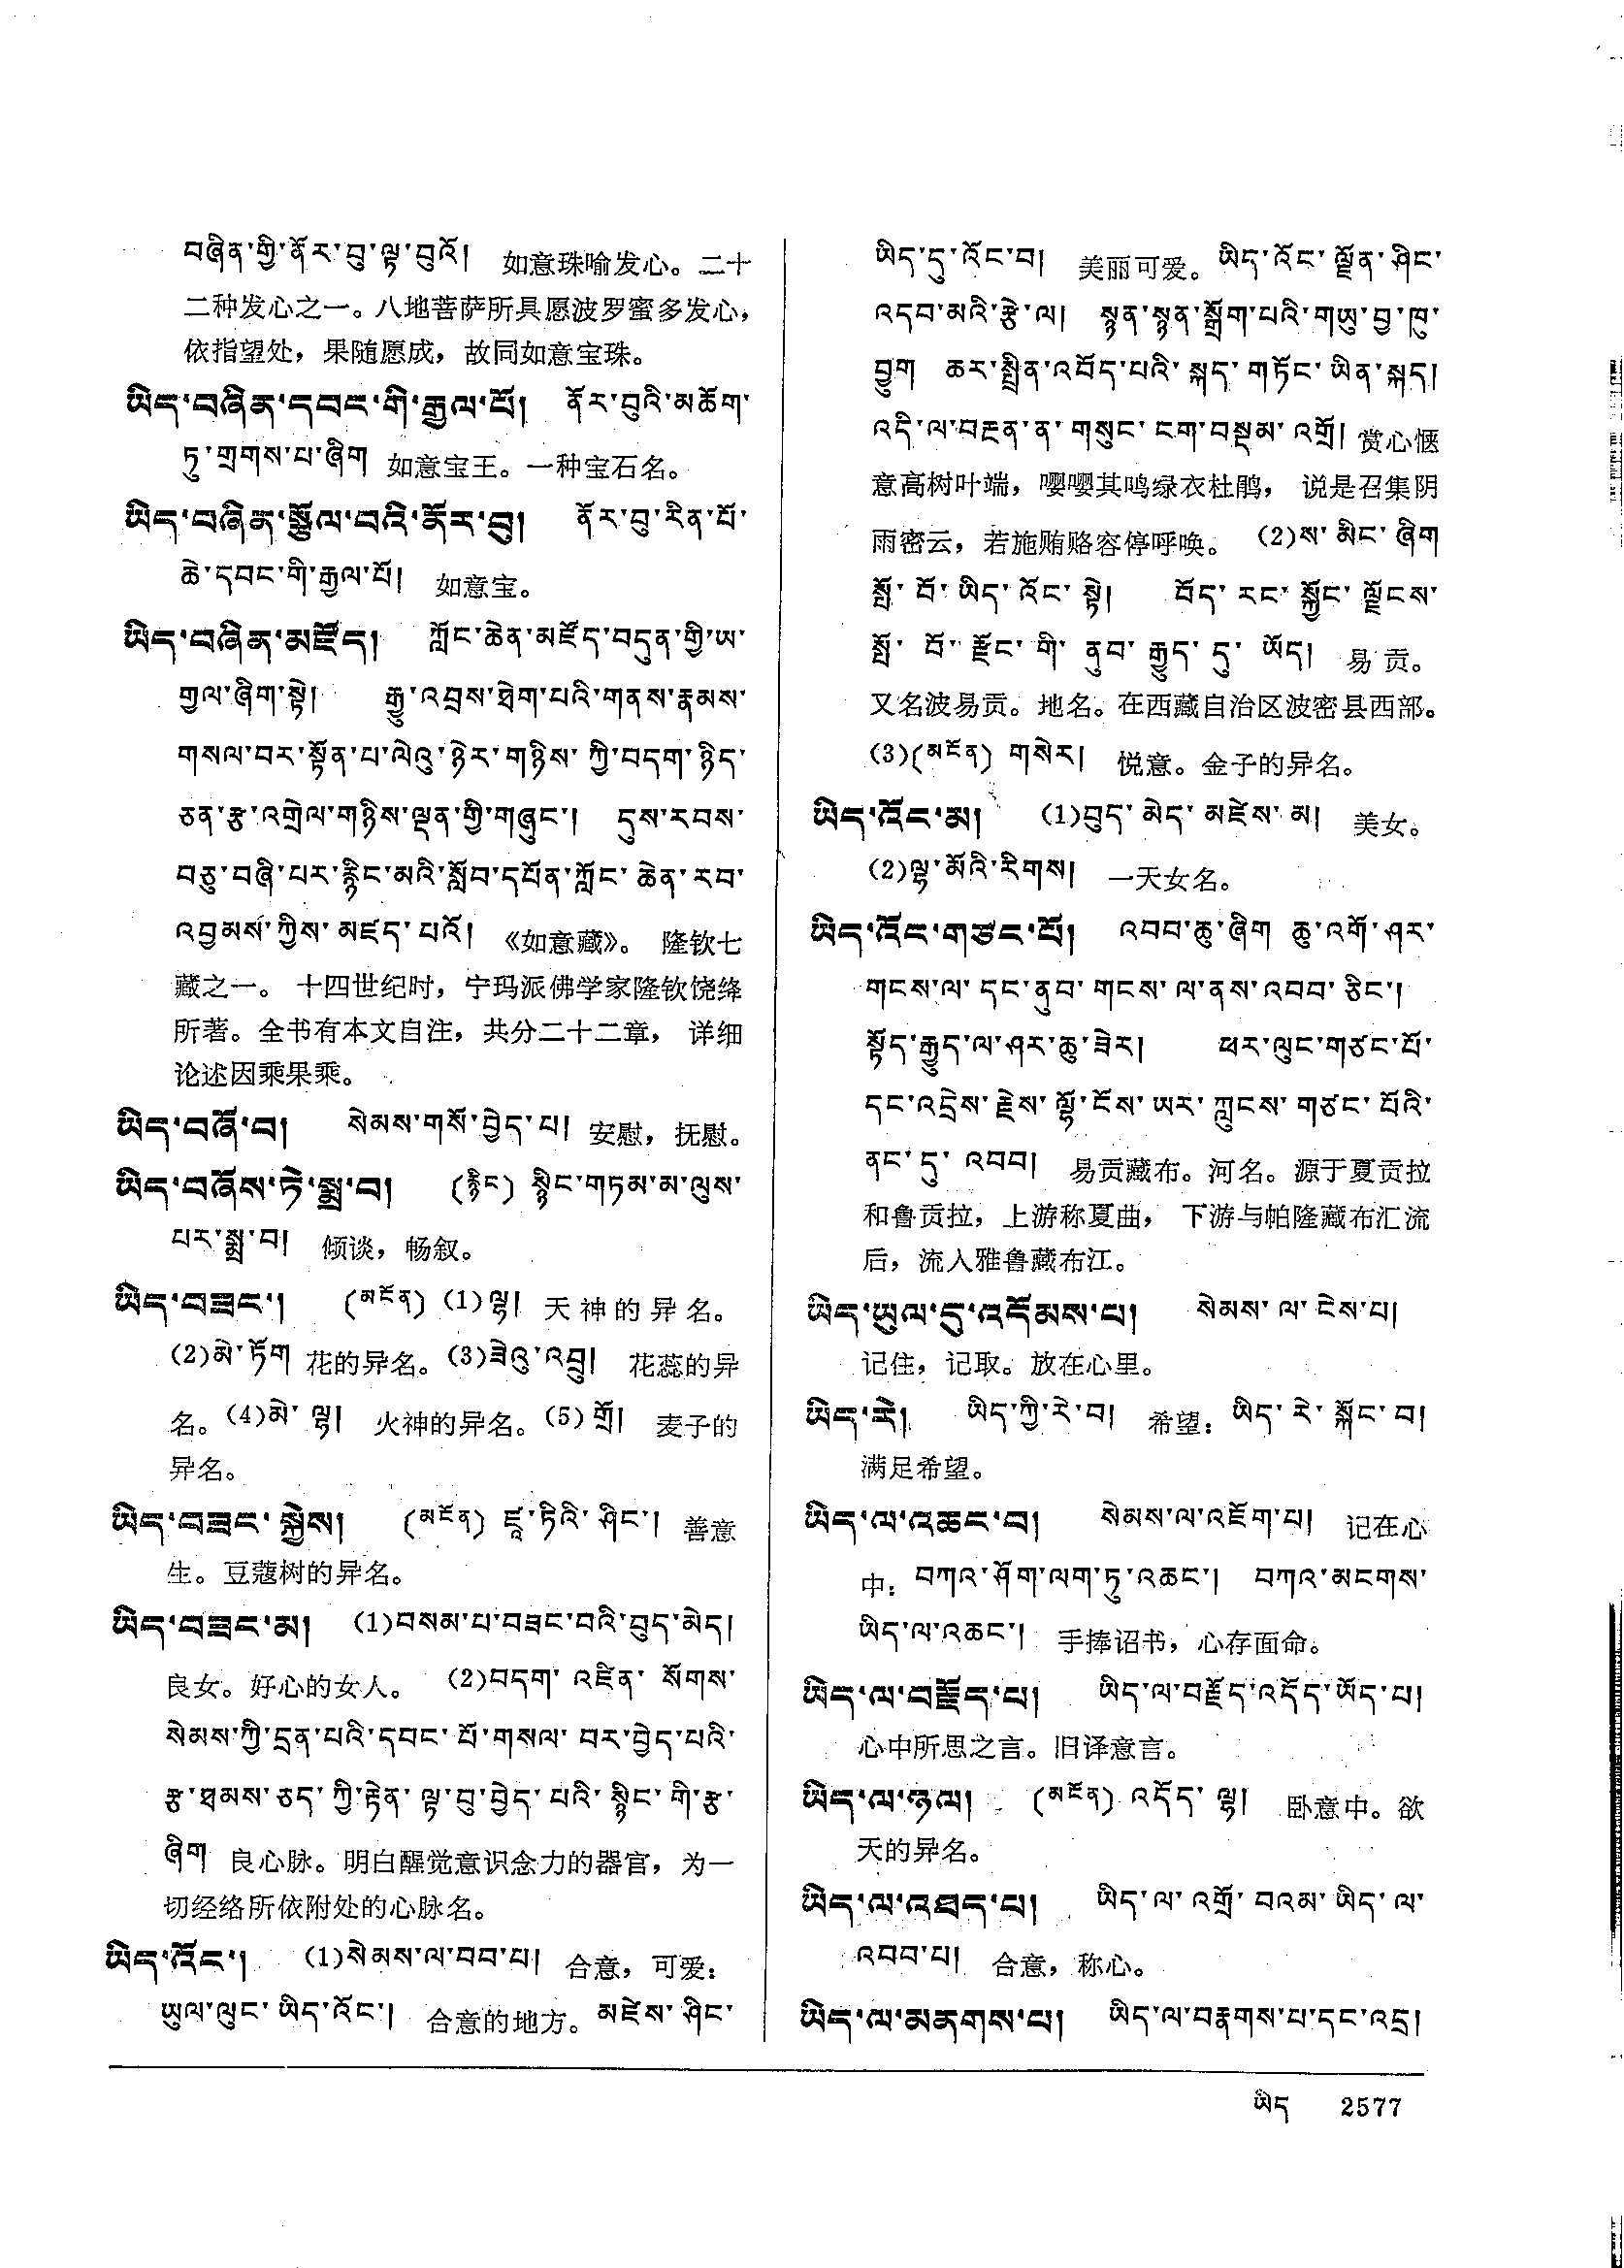 བཞིན་གྱི་ནོར་བུ་ལྟ་བུའོ། 如意珠喻发心。二十
二种发心之一。八地菩萨所具愿波罗蜜多发心，
依指望处，果随愿成，故同如意宝珠。
ཡིད་བཞིན་དབང་གི་རྒྱལ་པོ། ནོར་བུའི་མཆོག་
ཏུ་གྲགས་པ་ཞིག 如意宝王。一种宝石名。
ཡིད་བཞིན་སྩོལ་བའི་ནོར་བུ། ནོར་བུ་རིན་པོ་
ཆེ་དབང་གི་རྒྱལ་པོ། 如意宝。
ཡིད་བཞིན་མཛོད། ཀློང་ཆེན་མཛོད་བདུན་གྱི་ཡ་
གྱལ་ཞིག་སྟེ། རྒྱུ་འབྲས་ཐེག་པའི་གནས་རྣམས་
གསལ་བར་སྟོན་པ་ལེའུ་ཉེར་གཉིས་ཀྱི་བདག་ཉིད་
ཅན་རྩ་འགྲེལ་གཉིས་ལྡན་གྱི་གཞུང་། དུས་རབས་
བཅུ་བཞི་པར་རྙིང་མའི་སློབ་དཔོན་ཀློང་ཆེན་རབ་
འབྱམས་ཀྱིས་མཛད་པའོ། 《如意藏》。 隆钦七
藏之一。 十四世纪时，宁玛派佛学家隆钦饶绛
所著。全书有本文自注，共分二十二章， 详细
论述因乘果乘。
ཡིད་བཞོ་བ། སེམས་གསོ་བྱེད་པ། 安慰，抚慰。
ཡིད་བཞོས་ཏེ་སྨྲ་བ། (རྙིང) སྙིང་གཏམ་མ་ལུས་
པར་སྨྲ་བ། 倾谈，畅叙。
ཡིད་བཟང་། (མངོན) (1)ལྷ། 天神的异名。
(2)མེ་ཏོག 花的异名。(3)ཟེའུ་འབྲུ། 花蕊的异
名。(4)མེ་ལྷ། 火神的异名。(5)གྲོ། 麦子的
异名。
ཡིད་བཟང་སྐྱེས། (མངོན) ཛཱ་ཏིའི་ཤིང་། 善意
生。豆蔻树的异名。
ཡིད་བཟང་མ། (1)བསམ་པ་བཟང་བའི་བུད་མེད།
良女。好心的女人。 (2)བདག་འཛིན་སོགས་
སེམས་ཀྱི་དྲན་པའི་དབང་པོ་གསལ་བར་བྱེད་པའི་
རྩ་ཐམས་ཅད་ཀྱི་རྟེན་ལྟ་བུ་བྱེད་པའི་སྙིང་གི་རྩ་
ཞིག 良心脉。明白醒觉意识念力的器官，为一
切经络所依附处的心脉名。
ཡིད་འོང་། (1)སེམས་ལ་བབ་པ། 合意，可爱：
ཡུལ་ལུང་ཡིད་འོང་། 合意的地方。མཛེས་ཤིང་
ཡིད་དུ་འོང་བ། 美丽可爱。ཡིད་འོང་ལྗོན་ཤིང་
འདབ་མའི་རྩེ་ལ། སྙན་སྙན་སྒྲོག་པའི་གཡུ་བྱ་ཁུ་
བྱུག ཆར་སྤྲིན་འབོད་པའི་སྐད་གཏོང་ཡིན་སྐད།
འདི་ལ་བརྔན་ན་གསུང་ངག་བསྡམ་འགྲོ། 赏心惬
意高树叶端，嘤嘤其鸣绿衣杜鹃， 说是召集阴
雨密云，若施贿赂容停呼唤。 (2)ས་མིང་ཞིག
སྤོ་བོ་ཡིད་འོང་སྟེ། བོད་རང་སྐྱོང་ལྗོངས་
སྤོ་བོ་རྫོང་གི་ནུབ་རྒྱུད་དུ་ཡོད། 易贡。
又名波易贡。地名。在西藏自治区波密县西部。
(3)(མངོན) གསེར། 悦意。金子的异名。
ཡིད་འོང་མ། (1)བུད་མེད་མཛེས་མ། 美女。
(2)ལྷ་མོའི་རིགས། 一天女名。
ཡིད་འོང་གཙང་པོ། འབབ་ཆུ་ཞིག ཆུ་འགོ་ཤར་
གངས་ལ་དང་ནུབ་གངས་ལ་ནས་འབབ་ཅིང་།
སྟོད་རྒྱུད་ལ་ཤར་ཆུ་ཟེར། ཕར་ལུང་གཙང་པོ་
དང་འདྲེས་རྗེས་ལྷོ་ངོས་ཡར་ཀླུངས་གཙང་པོའི་
ནང་དུ་འབབ། 易贡藏布。河名。源于夏贡拉
和鲁贡拉，上游称夏曲， 下游与帕隆藏布汇流
后，流入雅鲁藏布江。
ཡིད་ཡུལ་དུ་འདོམས་པ། སེམས་ལ་ངེས་པ།
记住，记取。放在心里。
ཡིད་རེ། ཡིད་ཀྱི་རེ་བ། 希望：ཡིད་རེ་སྐོང་བ།
满足希望。
ཡིད་ལ་འཆང་བ། སེམས་ལ་འཇོག་པ། 记在心
中：བཀའ་ཤོག་ལག་ཏུ་འཆང་། བཀའ་མངགས་
ཡིད་ལ་འཆང་། 手捧诏书，心存面命。
ཡིད་ལ་བརྗོད་པ། ཡིད་ལ་བརྗོད་འདོད་ཡོད་པ།
心中所思之言。旧译意言。
ཡིད་ལ་ཉལ། (མངོན) འདོད་ལྷ། 卧意中。欲
天的异名。
ཡིད་ལ་འཐད་པ། ཡིད་ལ་འགྲོ་བའམ་ཡིད་ལ་
འབབ་པ། 合意，称心。
ཡིད་ལ་མནགས་པ། ཡིད་ལ་བརྣགས་པ་དང་འདྲ།
ཡིད 2577